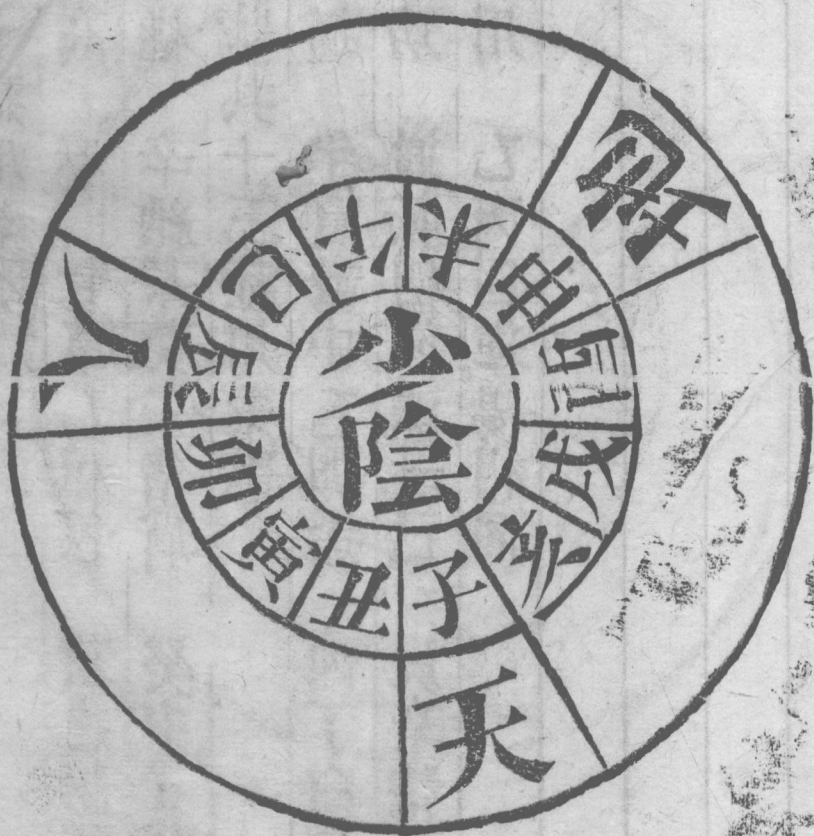 少陰
子
丑
寅
卯
辰
巳
午
未
申
酉
戌
亥
天
人
地